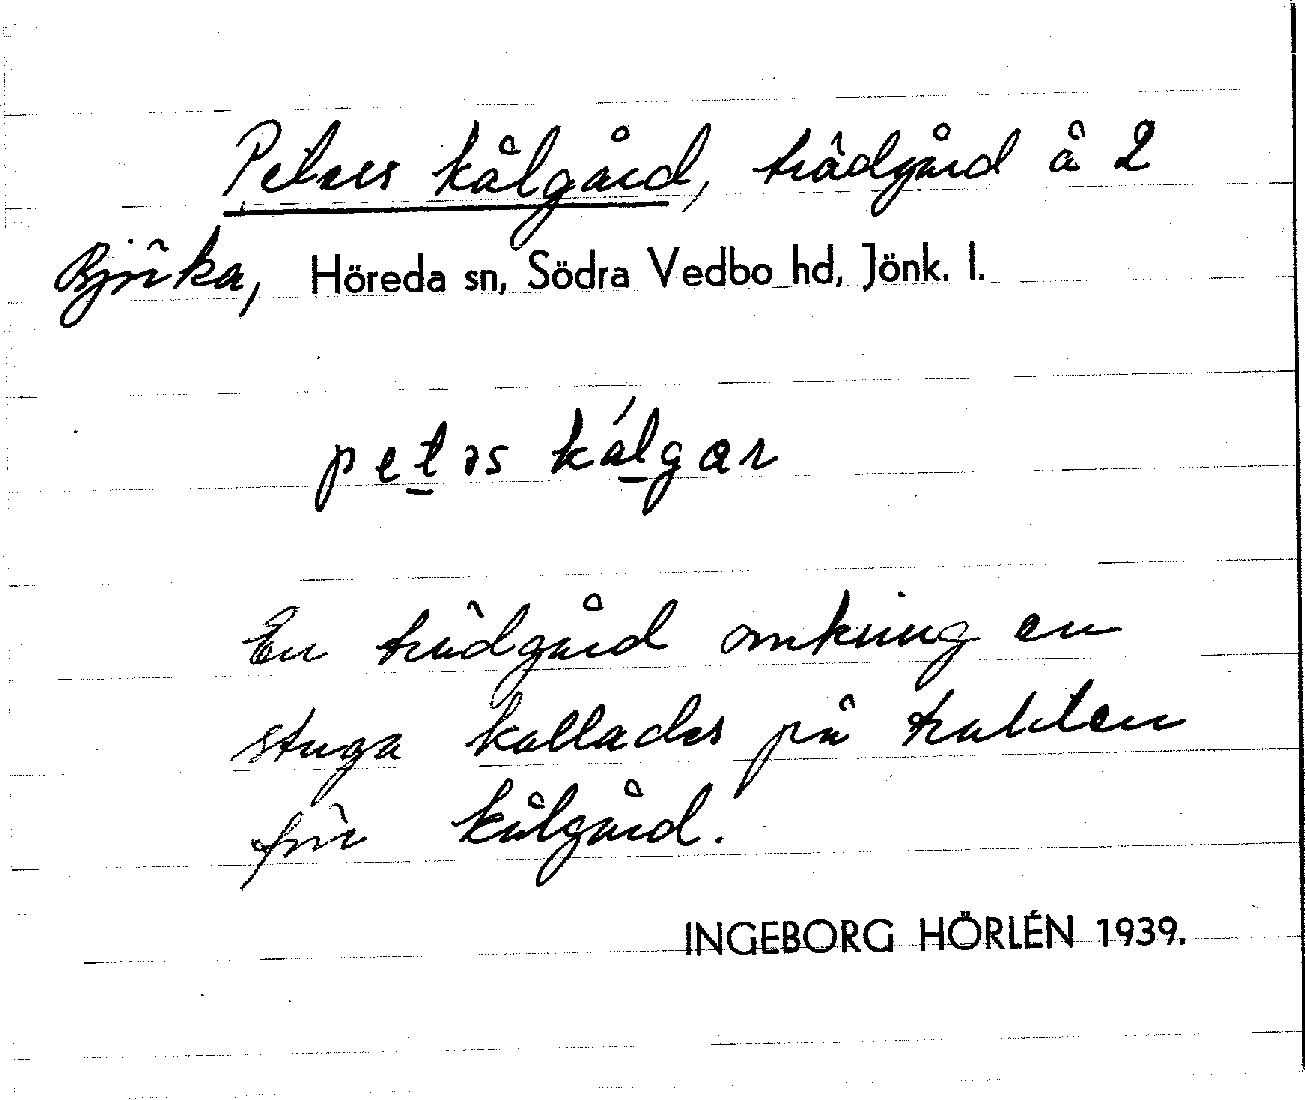 Peters kålgård, trädgård å 2
Björka, Höreda sn, Södra Vedbo hd, Jönk. l.
petəs kálgar
En trädgård omkring en
stuga kallades på trakten
för kålgård.
INGEBORG HÖRLÉN 1939.